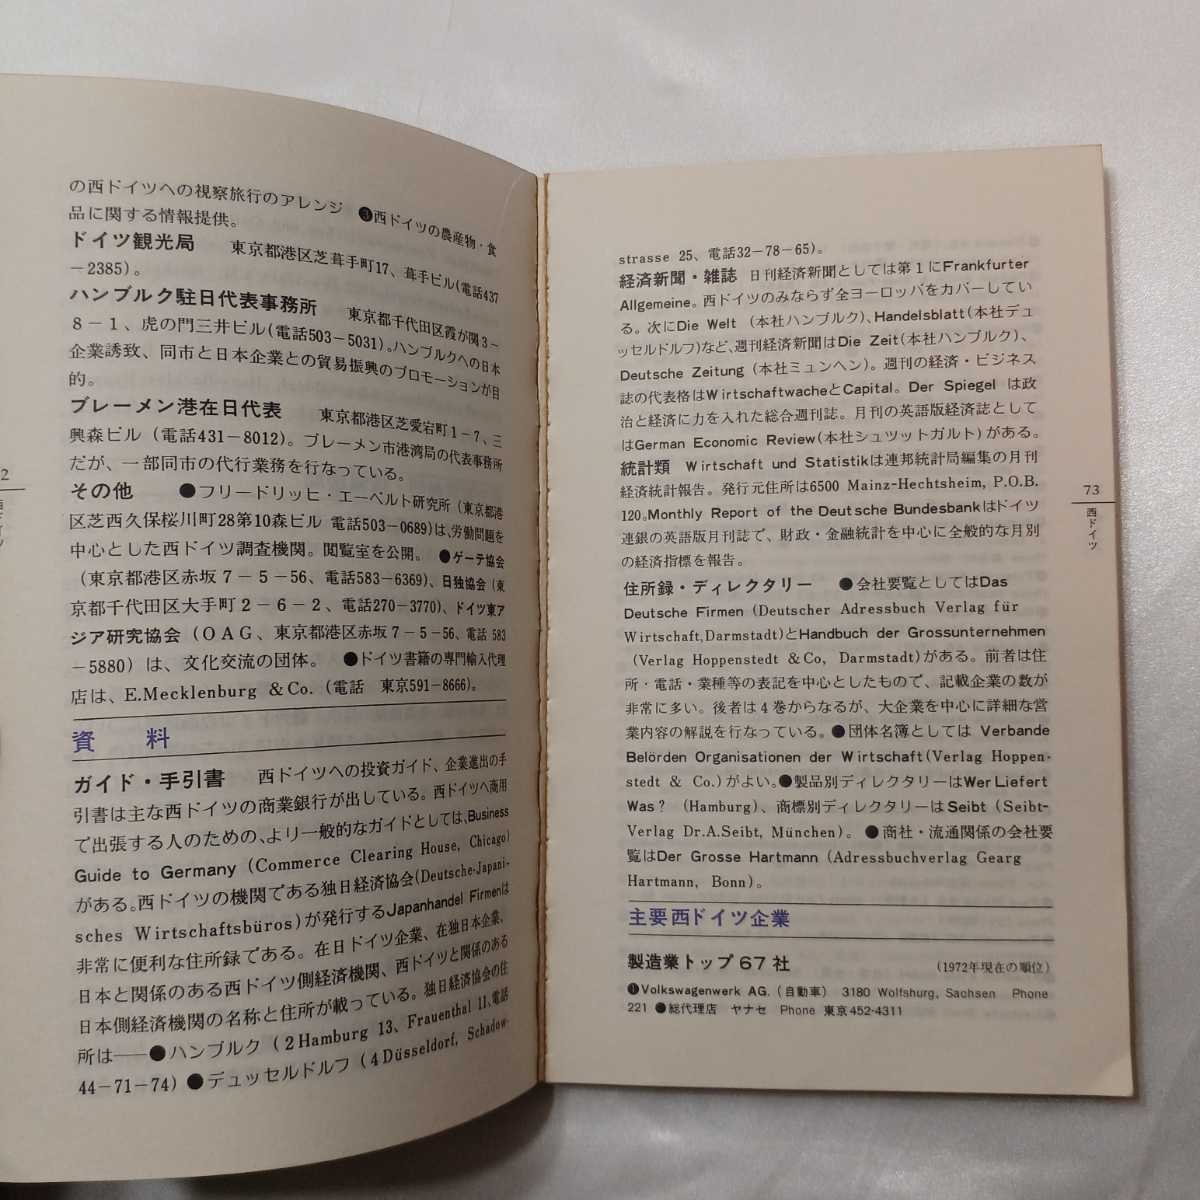 の西ドイツへの視察旅行のアレンジ ❸西ドイツの農産物・食
品に関する情報提供。
ドイツ観光局 東京都港区芝葺手町17、葺手ビル(電話437
－2385)。
ハンブルク駐日代表事務所 東京都千代田区霞が関3－
8－1、虎の門三井ビル(電話503－5031)。ハンブルクへの日本
企業誘致、同市と日本企業との貿易振興のプロモーションが目
的。
ブレーメン港在日代表 東京都港区芝愛宕町1－7、三
興森ビル (電話431－8012)。ブレーメン市港湾局の代表事務所
だが、一部同市の代行業務を行なっている。
その他 ●フリードリッヒ・エーベルト研究所 (東京都港
区芝西久保桜川町28第10森ビル 電話503－0689)は、労働問題を
中心とした西ドイツ調査機関。閲覧室を公開。 ●ゲーテ協会
(東京都港区赤坂7－5－56、電話583－6369)、日独協会 (東
京都千代田区大手町2－6－2、電話270－3770)、ドイツ東ア
ジア研究協会 (OAG、東京都港区赤坂7－5－56、電話 583
－5880) は、文化交流の団体。 ●ドイツ書籍の専門輸入代理
店は、E.Mecklenburg & Co. (電話 東京591－8666)。
資 料
ガイド・手引書 西ドイツへの投資ガイド、企業進出の手
引書は主な西ドイツの商業銀行が出している。西ドイツへ商用
で出張する人のための、より一般的なガイドとしては、Business
Guide to Germany (Commerce Clearing House, Chicago)
がある。西ドイツの機関である独日経済協会(Deutsche-Japani-
sches Wirtschaftsbüros)が発行するJapanhandel Firmenは
非常に便利な住所録である。在日ドイツ企業、在独日本企業、
日本と関係のある西ドイツ側経済機関、西ドイツと関係のある
日本側経済機関の名称と住所が載っている。独日経済協会の住
所は――●ハンブルク (2 Hamburg 13, Frauenthal 11, 電話
44－71－74) ●デュッセルドルフ (4 Düsseldorf, Schadow-
2
strasse 25、電話32－78－65)。
経済新聞・雑誌 日刊経済新聞としては第1にFrankfurter
Allgemeine。西ドイツのみならず全ヨーロッパをカバーしてい
る。次にDie Welt (本社ハンブルク)、Handelsblatt(本社デュ
ッセルドルフ)など、週刊経済新聞はDie Zeit(本社ハンブルク)、
Deutsche Zeitung (本社ミュンヘン)。週刊の経済・ビジネス
誌の代表格はWirtschaftwacheとCapital。Der Spiegel は政
治と経済に力を入れた総合週刊誌。月刊の英語版経済誌として
はGerman Economic Review(本社シュツットガルト)がある。
統計類 Wirtschaft und Statistikは連邦統計局編集の月刊
経済統計報告。発行元住所は6500 Mainz-Hechtsheim, P.O.B.
120。Monthly Report of the Deutsche Bundesbankはドイツ
連銀の英語版月刊誌で、財政・金融統計を中心に全般的な月別
の経済指標を報告。
住所録・ディレクタリー ●会社要覧としてはDas
Deutsche Firmen (Deutscher Adressbuch Verlag für
Wirtschaft, Darmstadt)とHandbuch der Grossunternehmen
(Verlag Hoppenstedt & Co, Darmstadt)がある。前者は住
所・電話・業種等の表記を中心としたもので、記載企業の数が
非常に多い。後者は4巻からなるが、大企業を中心に詳細な営
業内容の解説を行なっている。●団体名簿としては Verbande
Belörden Organisationen der Wirtschaft(Verlag Hoppen-
stedt & Co.)がよい。●製品別ディレクタリーはWer Liefert
Was? (Hamburg)、商標別ディレクタリーはSeibt (Seibt-
Verlag Dr.A.Seibt, München)。 ●商社・流通関係の会社要
覧はDer Grosse Hartmann (Adressbuchverlag Gearg
Hartmann, Bonn)。
主要西ドイツ企業
製造業トップ67社 (1972年現在の順位)
❶Volkswagenwerk AG. (自動車) 3180 Wolfsburg, Sachsen Phone
221 ●総代理店 ヤナセ Phone 東京452-4311
73
西ドイツ